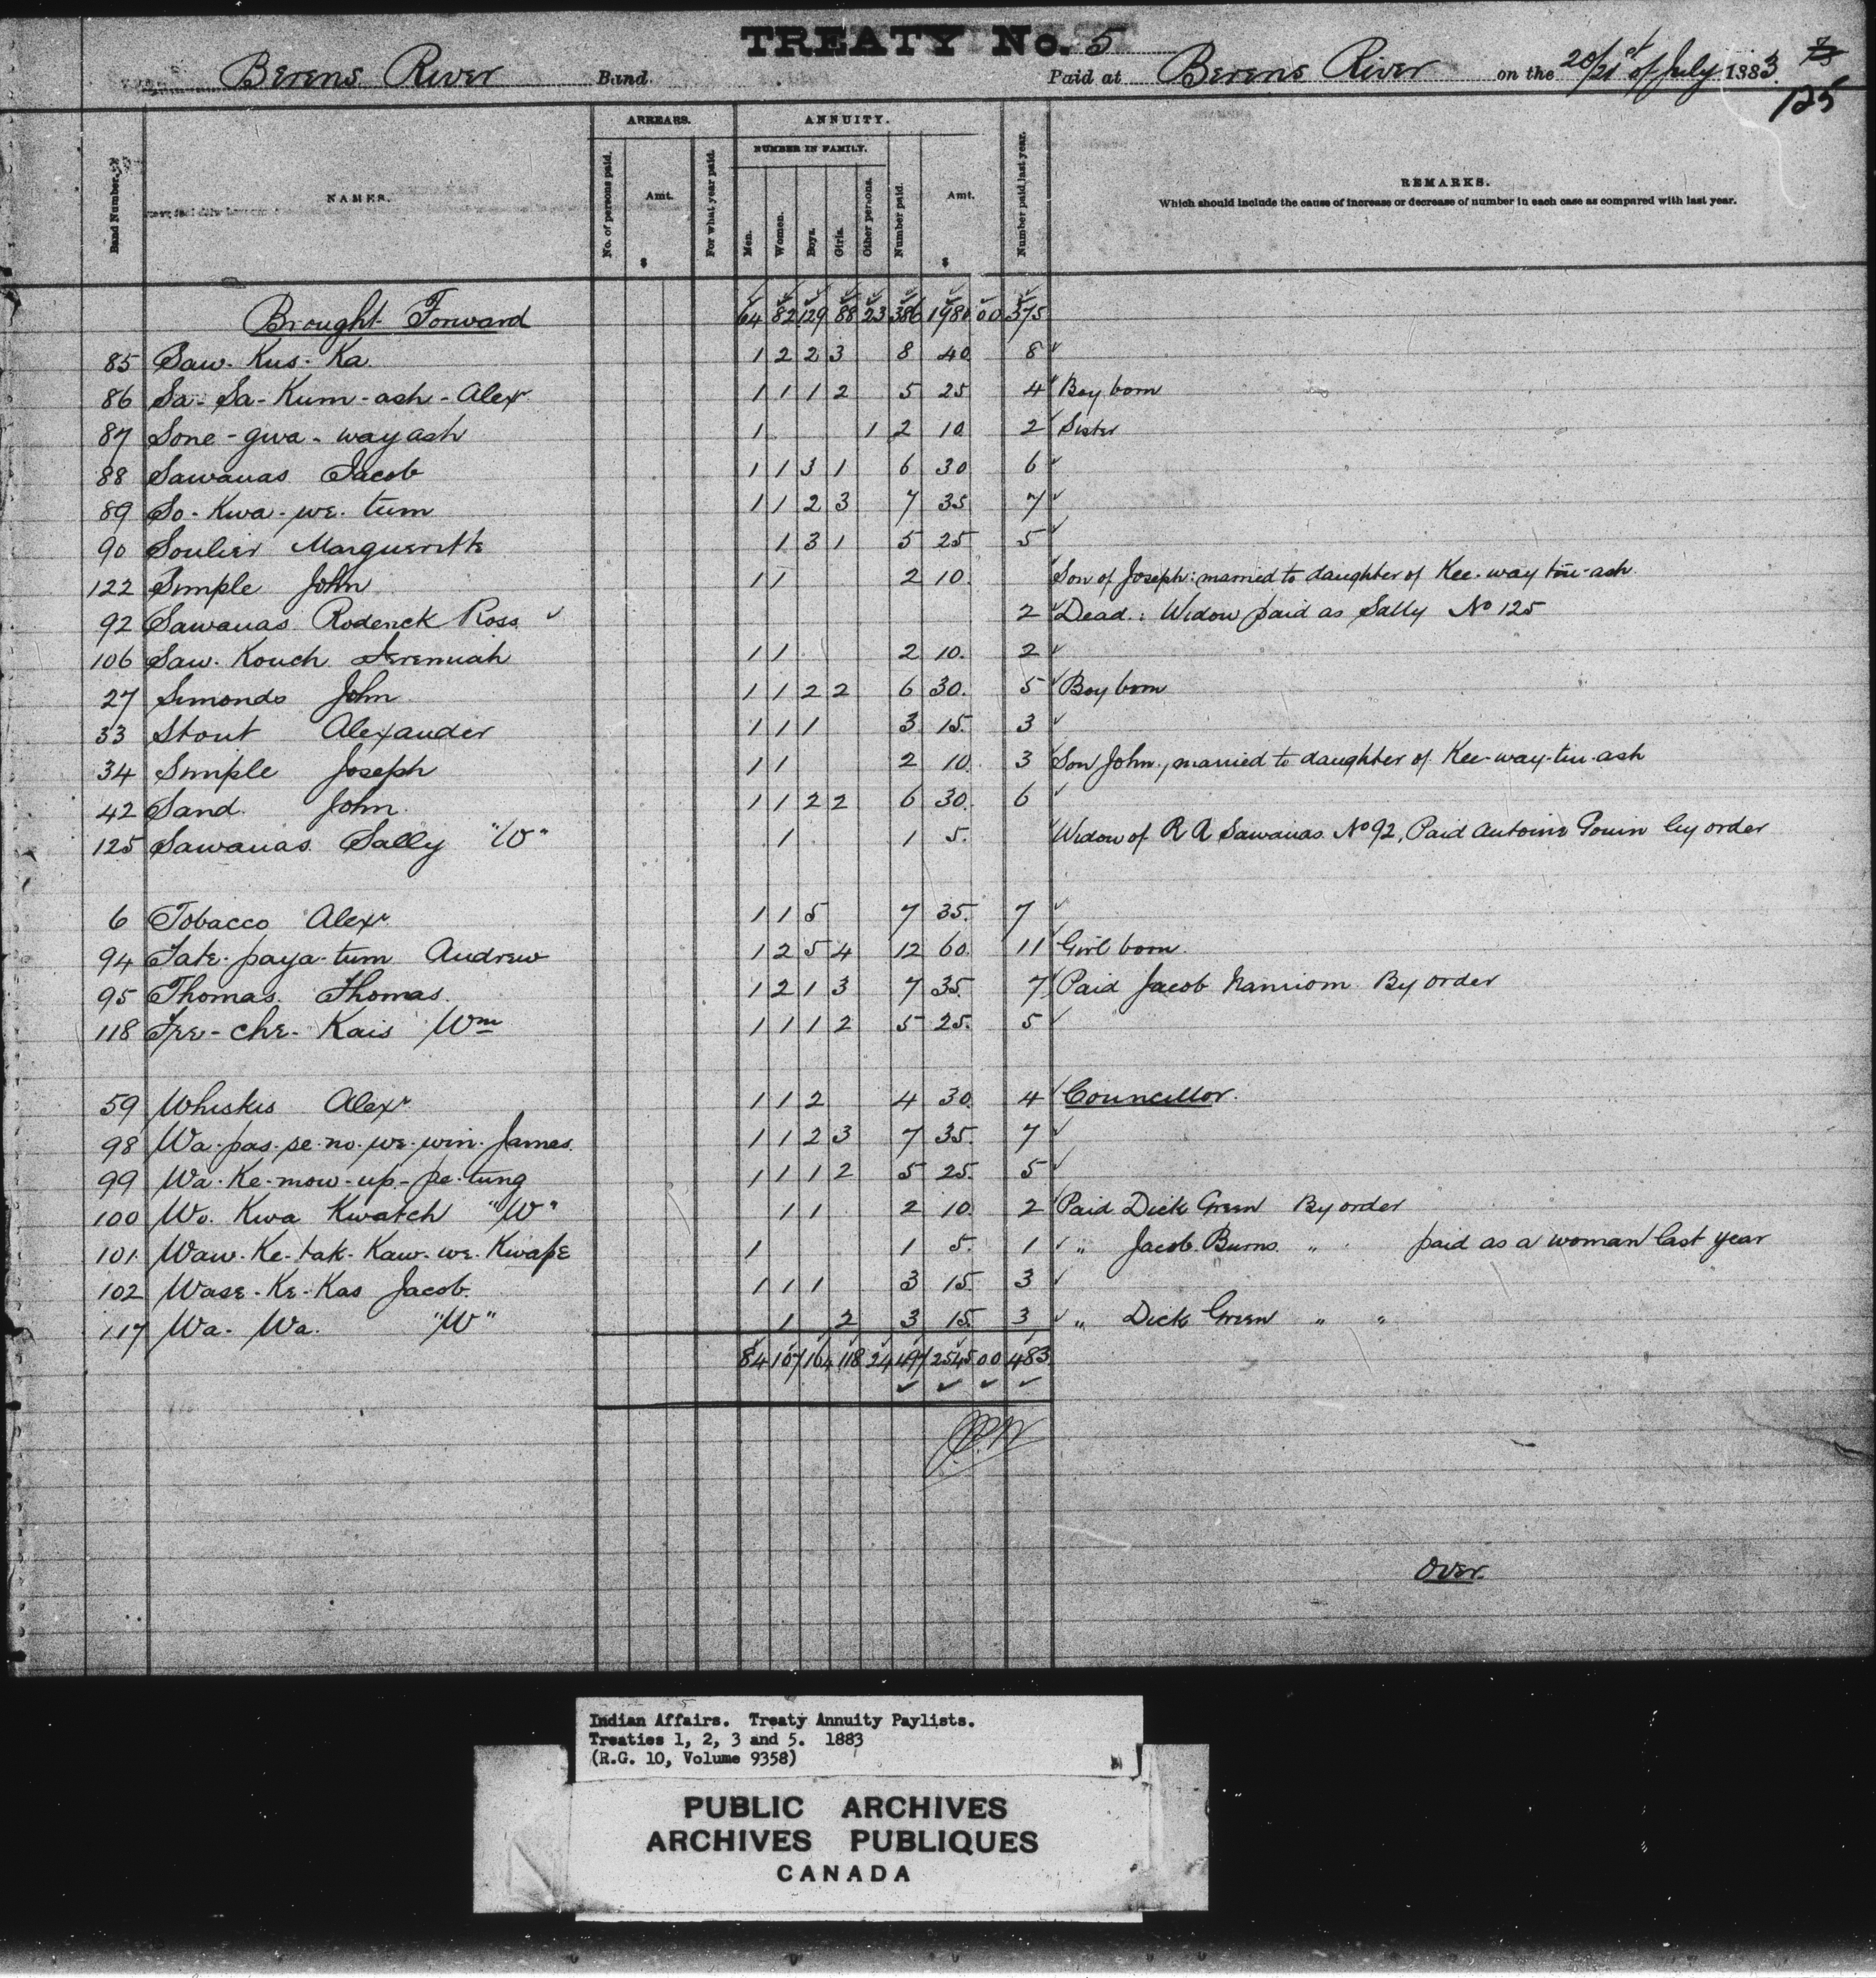 TREATY No. 5
Berens River Band. Paid at Berens River on the 20/21st of July 1883.
125
Band Number.
NAMES.
ARREARS.
No. of persons paid.
Amt.
$
For what year paid.
ANNUITY.
NUMBER IN FAMILY.
Men.
Women.
Boys.
Girls.
Other persons.
Number paid.
Amt.
$
Number paid last year.
REMARKS.
Which should include the cause of increase or decrease of number in each case as compared with last year.
Brought Forward 64 82 129 88 23 386 1980 00 375
85 Saw-Kus-Ka 1 2 2 3 8 40 8 ✓
86 Sa-Sa-Kum-ash-Alexr 1 1 1 2 5 25 4 ✓ Boy born
87 Sone-gwa-wayash 1 1 2 10 2 ✓ Sister
88 Sawanas Jacob 1 1 3 1 6 30 6 ✓
89 So-Kwa-we-tum 1 1 2 3 7 35 7 ✓
90 Soulier Margueritte 1 3 1 5 25 5 ✓
122 Simple John 1 1 2 10. Son of Joseph: married to daughter of Kee-way-tin-ash
92 Sawanas Roderick Ross ✓ 2 ✓ Dead.: Widow paid as Sally No 125
106 Saw-Kouch Jeremiah 1 1 2 10. 2 ✓
27 Simonds John 1 1 2 2 6 30. 5 ✓ Boy born
33 Stout Alexander 1 1 1 3 15. 3 ✓
34 Simple Joseph 1 1 2 10. 3 Son John, married to daughter of Kee-way-tin-ash
42 Sand John 1 1 2 2 6 30. 6 ✓
125 Sawanas Sally "W" 1 1 5. Widow of R R Sawanas No 92, Paid Antoine Gouin by order
6 Tobacco Alexr 1 1 5 7 35. 7 ✓
94 Tate-paya-tum Andrew 1 2 5 4 12 60. 11 Girl born.
95 Thomas Thomas 1 2 1 3 7 35. 7 Paid Jacob Nanniom By order
118 Tee-che-Kais Wm 1 1 1 2 5 25. 5 ✓
59 Whiskis Alexr 1 1 2 4 30. 4 ✓ Councillor.
98 Wa-pas-se-no-we-win-James 1 1 2 3 7 35. 7 ✓
99 Wa-Ke-mow-up-pe-tung 1 1 1 2 5 25. 5 ✓
100 Wo. Kwa Kwatch "W" 1 1 2 10. 2 Paid Dick Green By order
101. Waw-Ke-tak-Kaw-we-Kwape 1 1 5. 1 ✓ " Jacob Burns " paid as a woman last year
102 Wase-Ke-Kas Jacob. 1 1 1 3 15. 3 ✓
117 Wa-Wa. "W" 1 2 3 15. 3 ✓ " Dick Green " "
84 107 164 118 24 497 2545 00 483
✓ ✓ ✓ ✓
Over.
Indian Affairs. Treaty Annuity Paylists.
Treaties 1, 2, 3 and 5. 1883
(R.G. 10, Volume 9358)
PUBLIC ARCHIVES
ARCHIVES PUBLIQUES
CANADA